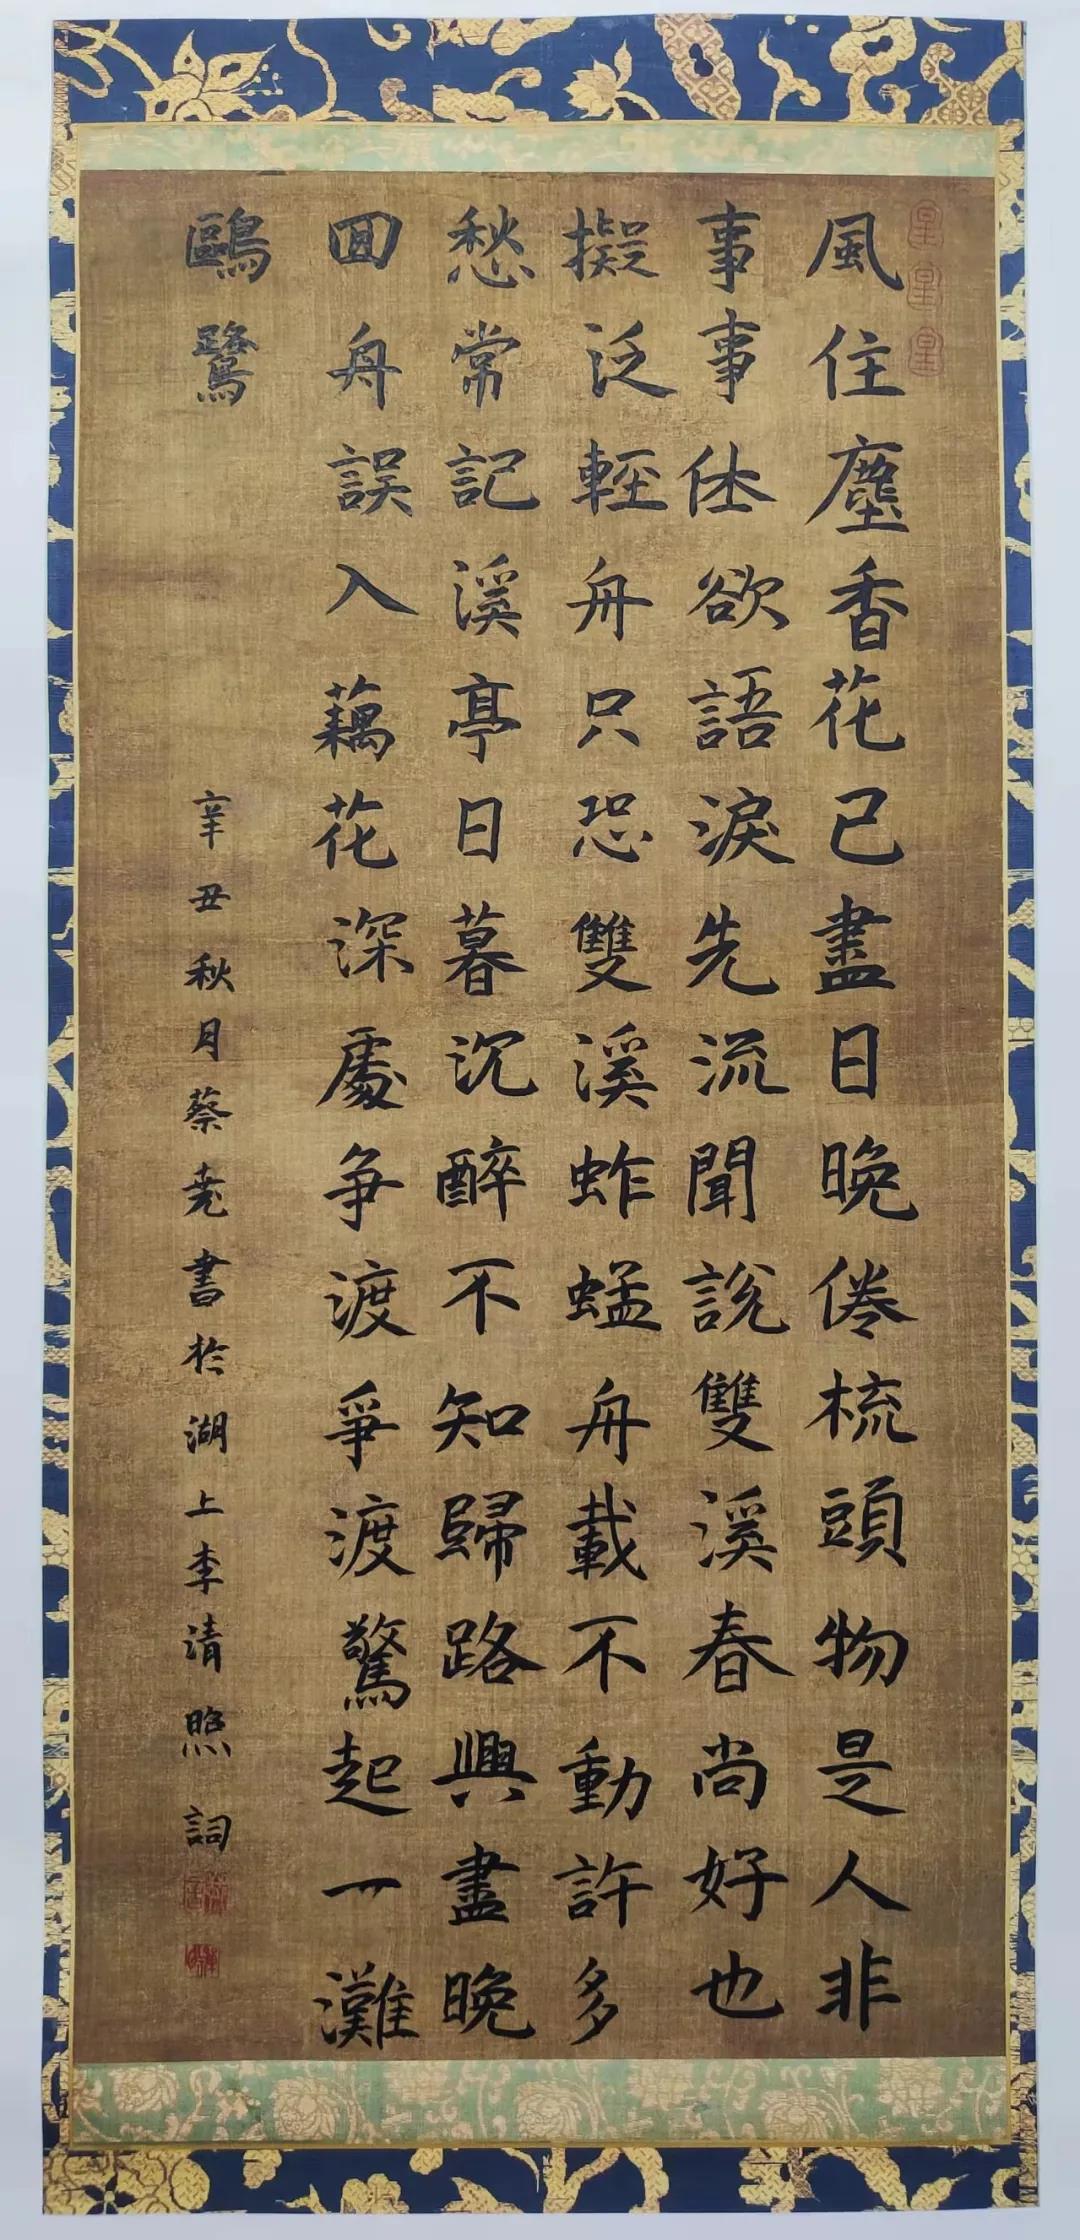 風住塵香花已盡日晚倦梳頭物是人非
事事休欲語淚先流聞說雙溪春尚好也
擬泛輕舟只恐雙溪蚱蜢舟載不動許多
愁常記溪亭日暮沉醉不知歸路興盡晚
回舟誤入藕花深處爭渡爭渡驚起一灘
鷗鷺
辛丑秋月蔡尭書於湖上李清照詞